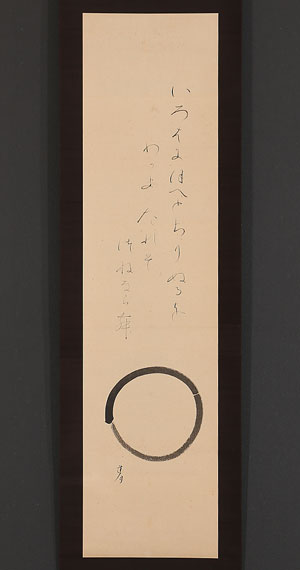 いろはにほへとちりぬるを
わかよたれそ
つねならむ